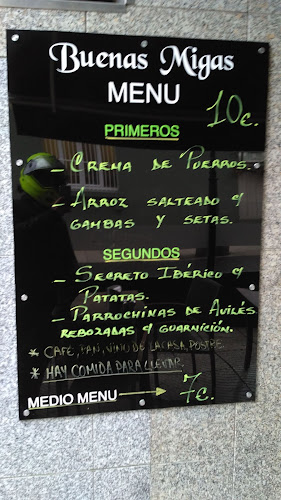 Buenas Migas
MENU
10€.
PRIMEROS
- CREMA DE PUERROS.
- ARROZ SALTEADO c/
GAMBAS Y SETAS.
SEGUNDOS
- SECRETO IBÉRICO c/
PATATAS.
- PARROCHINAS DE AVILÉS
REBOZADAS c/ GUARNICIÓN.
* CAFE, PAN, VINO DE LA CASA, POSTRE.
* HAY COMIDA PARA LLEVAR.
MEDIO MENU → 7€.